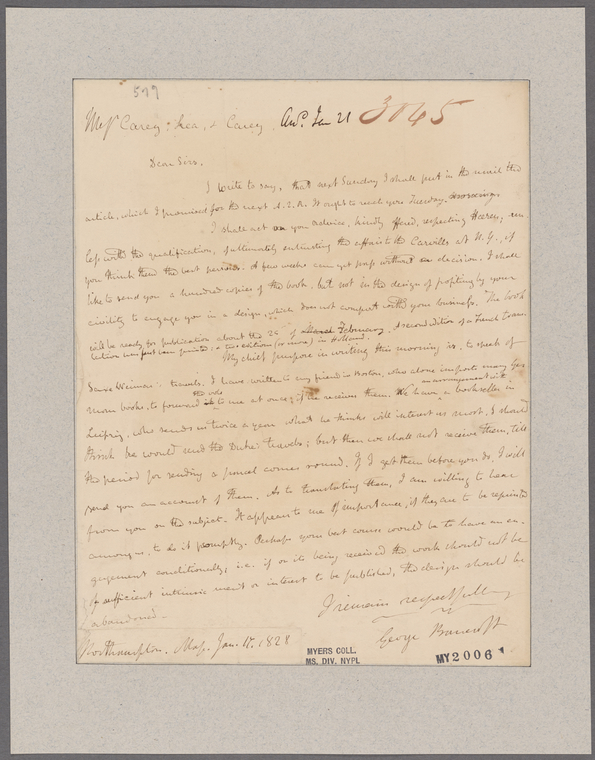 599
Messrs Carey, Lea, & Carey. Ansd. Jan 21 3045
Dear Sirs.
I write to say, that next Sunday I shall put in the mail the
article, which I promised for the next A.Q.R. It ought to reach you Tuesday
I shall act on your advice, kindly offered, respecting Heeren, un
less with the qualification, of ultimately entrusting the affair to the Carvills at N.Y., if
you think them the best persons. A few weeks can yet pass without a decision. I shall
like to send you a hundred copies of the book, but not in the design of profiting by your
civility to engage you in a design, which does not comport with your business. The book
will be ready for publication about the 25 of February. A second edition of a French trans
lation has just been printed: & two editions (or more) in Holland.
My chief purpose in writing this morning is, to speak of
Saxe Weimar's travels. I have written to my friend in Boston, who alone imports many Ger
man books, to forward the vols to me at once, if he receives them. We have an arrangement with a bookseller in
Leipzig, who sends us twice a year what he thinks will interest us most. I should
think he would send the Duke's travels; but then we shall not receive them, till
the period for sending a parcel comes round. If I get them before you do, I will
send you an account of them. As to translating them, I am willing to hear
from you on the subject. It appears to me of importance, if they are to be reprinted
among us, to do it promptly. Perhaps your best course would be to have an en
gagement conditionally; i.e. if on its being received the work should not be
of sufficient intrinsic merit or interest to be published, the design should be
abandoned.
I remain respectfully
George Bancroft
Northampton. Mass. Jan. 1828
MYERS COLL.
MS. DIV. NYPL
MY2006